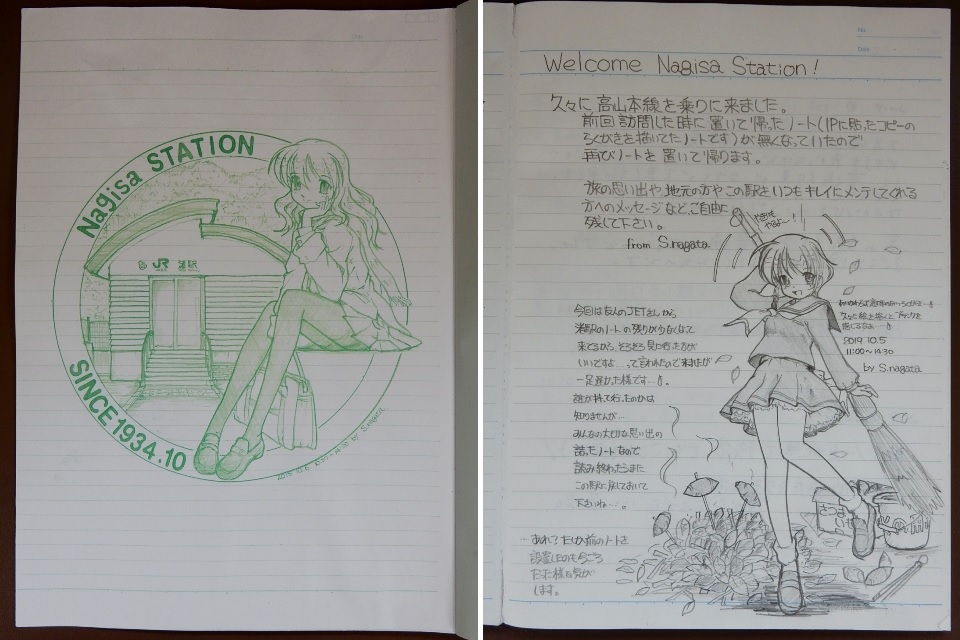 Nagisa STATION
JR 渚駅
SINCE 1934.10
by S.nagata
No.
Date
Welcome Nagisa Station!
久々に高山本線を乗りに来ました。
前回訪問した時に置いて帰ったノート(IPに貼ったコピーの
らくがきを描いてたノートです)が無くなっていたので
再びノートを置いて帰ります。
旅の思い出や地元の方やこの駅をいつもキレイにメンテしてくれる
方へのメッセージなど、ご自由に
残して下さい。
from S.nagata
今回は友人のJETさんから
渚駅のノートの残りが少なくなって
来てるから、そろそろ見に行った方が
いいですよ…って言われたので来ましたが
一足遅かった様です…。
誰が持って行ったのかは
知りませんが…
みんなの大切な思い出の
詰ったノートなので
読み終わったらまた
この駅に戻しておいて
下さいね…。
…あれ?たしか前のノートを
設置したのもこごろ
だった様な気が
します。
久々に絵を描くとブランクを
感じるなぁ…
2019.10.5
11:00〜14:30
by S.nagata
さつまいも